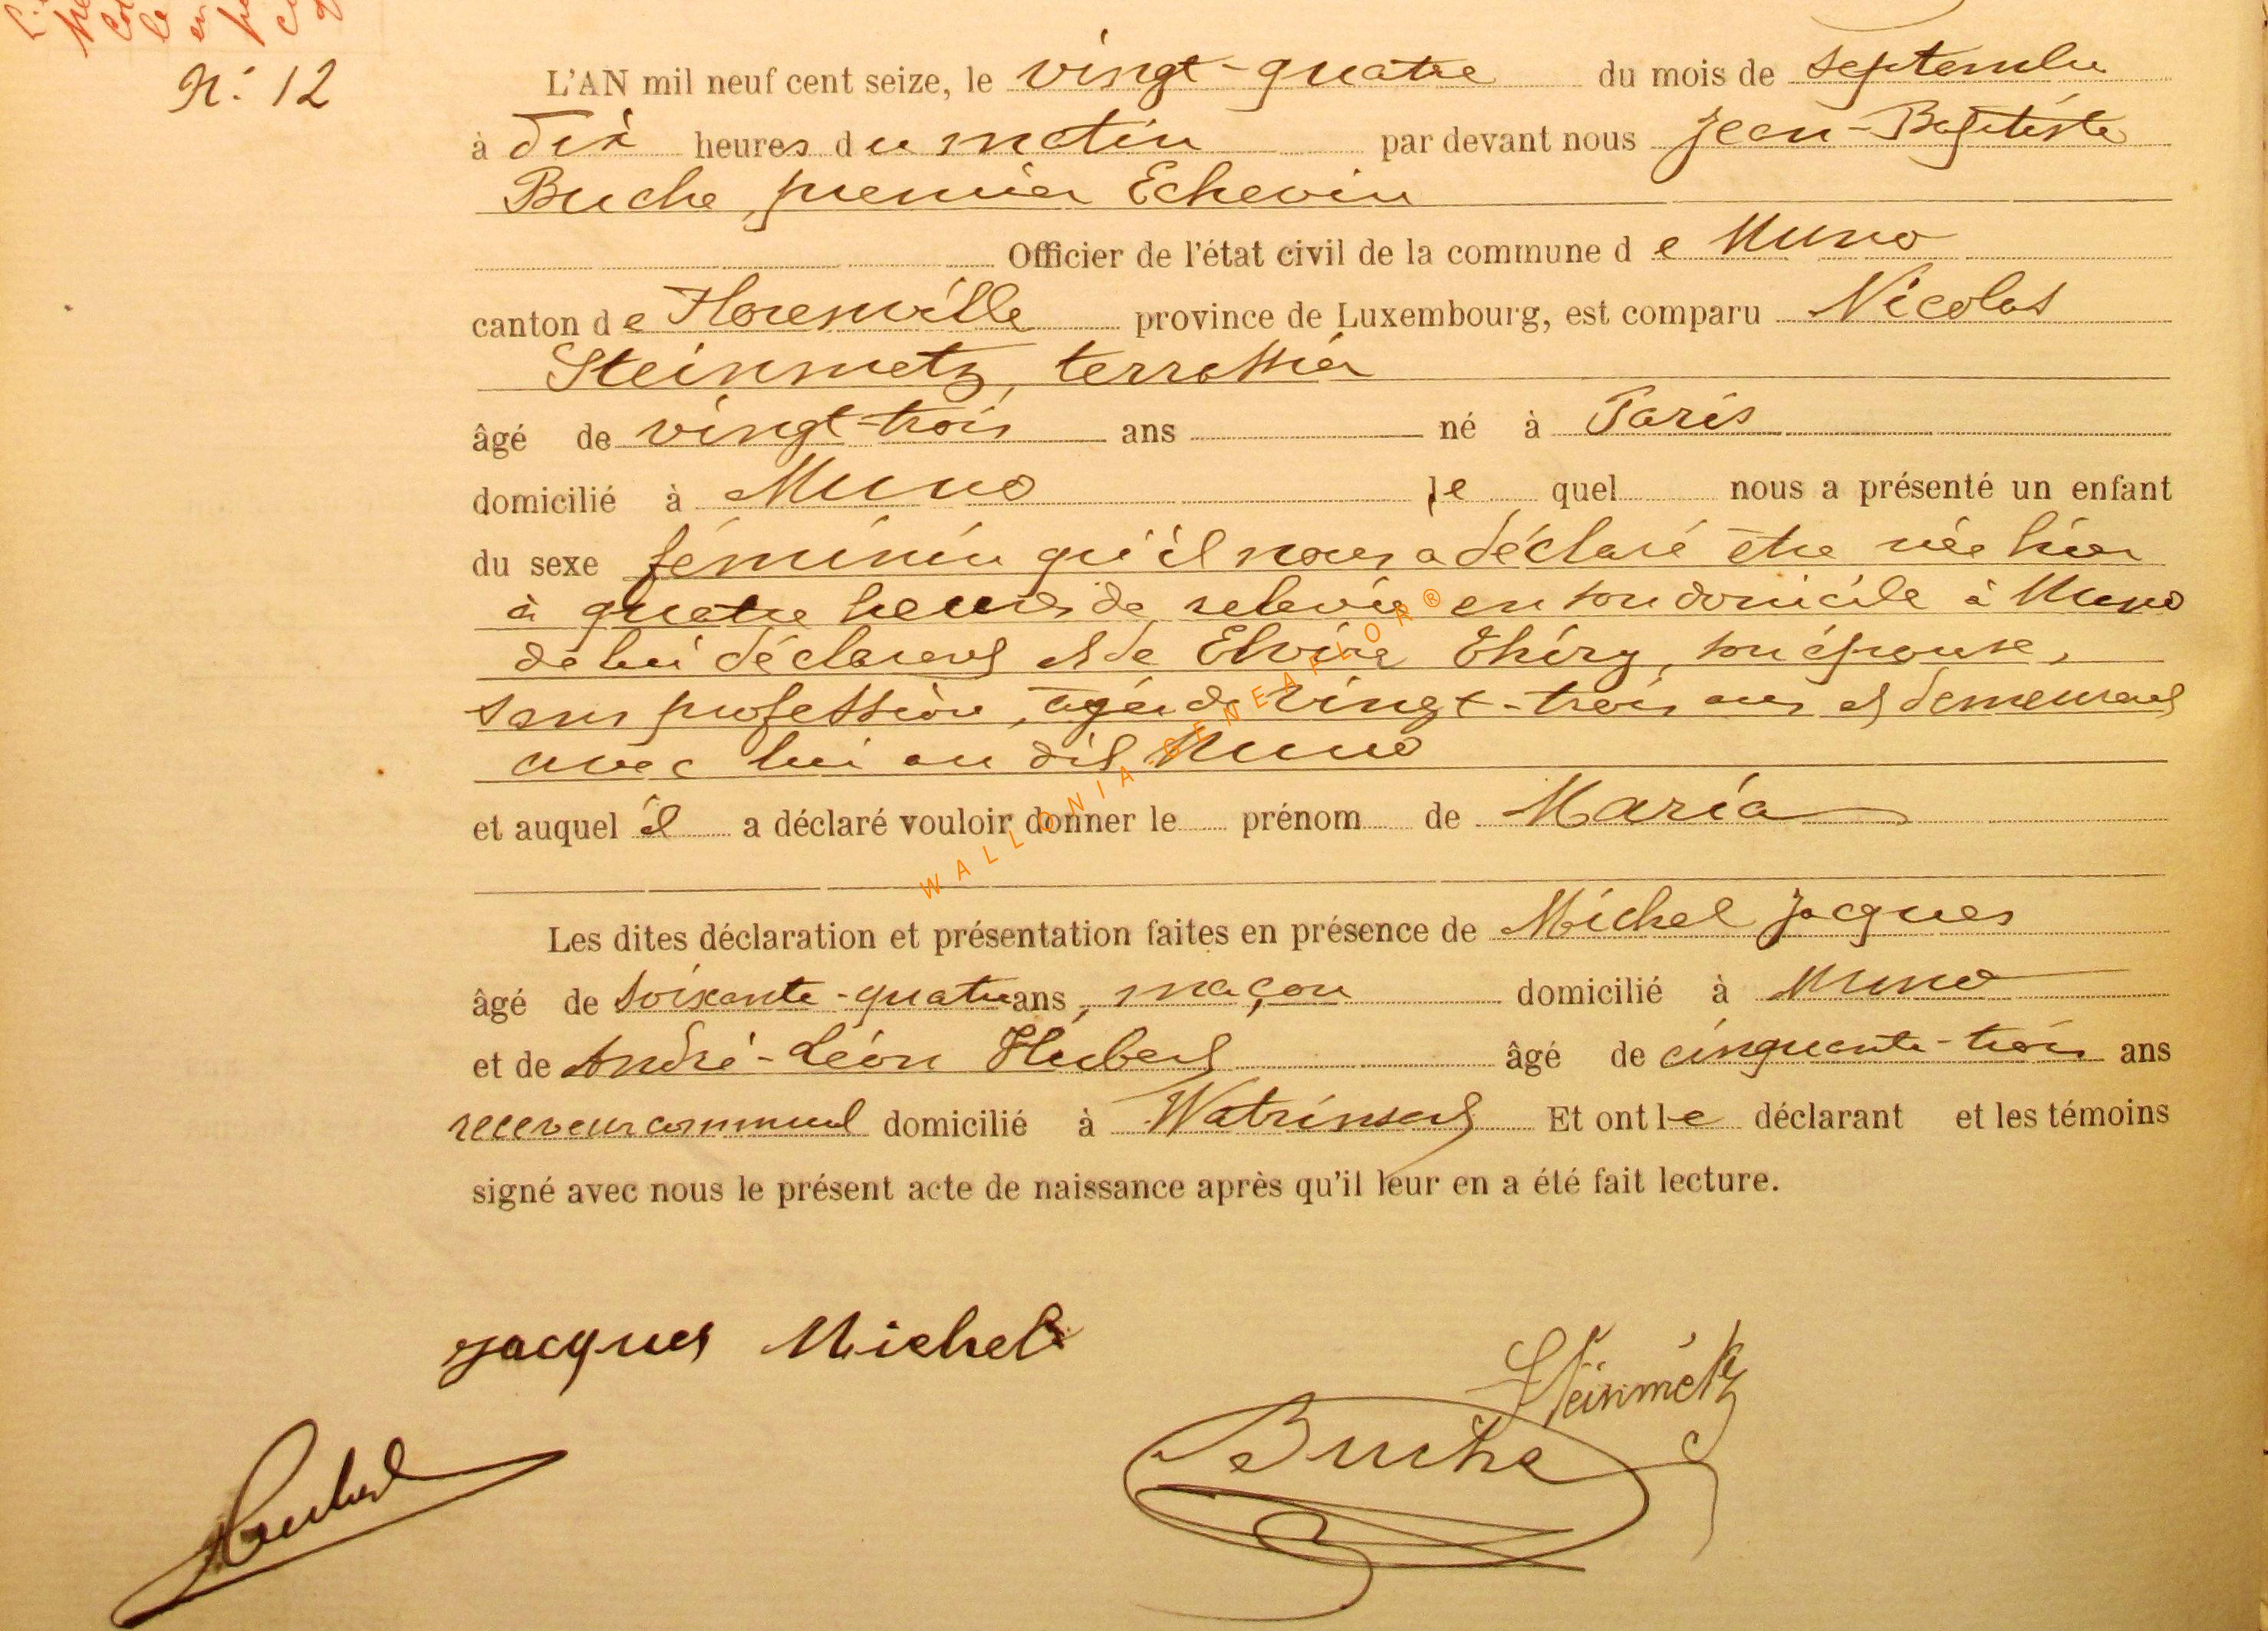 N° 12
L'AN mil neuf cent seize, le vingt-quatre du mois de septembre
à dix heures du matin par devant nous Jean-Baptiste
Buche, premier Echevin
Officier de l'état civil de la commune de Muno
canton de Florenville province de Luxembourg, est comparu Nicolas
Steinmetz, terrassier
âgé de vingt-trois ans né à Paris
domicilié à Muno lequel nous a présenté un enfant
du sexe féminin qu'il nous a déclaré être née hier
à quatre heures de relevée en son domicile à Muno
de lui déclarant et de Elvire Théry, son épouse,
sans profession, âgée de vingt-trois ans et demeurant
avec lui au dit Muno
et auquel il a déclaré vouloir donner le prénom de Maria
WALLONIA-GENEAFLOR®
Les dites déclaration et présentation faites en présence de Michel Jacques
âgé de soixante-quatre ans, maçon domicilié à Muno
et de André-Léon Hubert âgé de cinquante-trois ans
receveur communal domicilié à Watrinsart Et ont le déclarant et les témoins
signé avec nous le présent acte de naissance après qu'il leur en a été fait lecture.
Jacques Michel
Steinmétz
Buche
Hubert